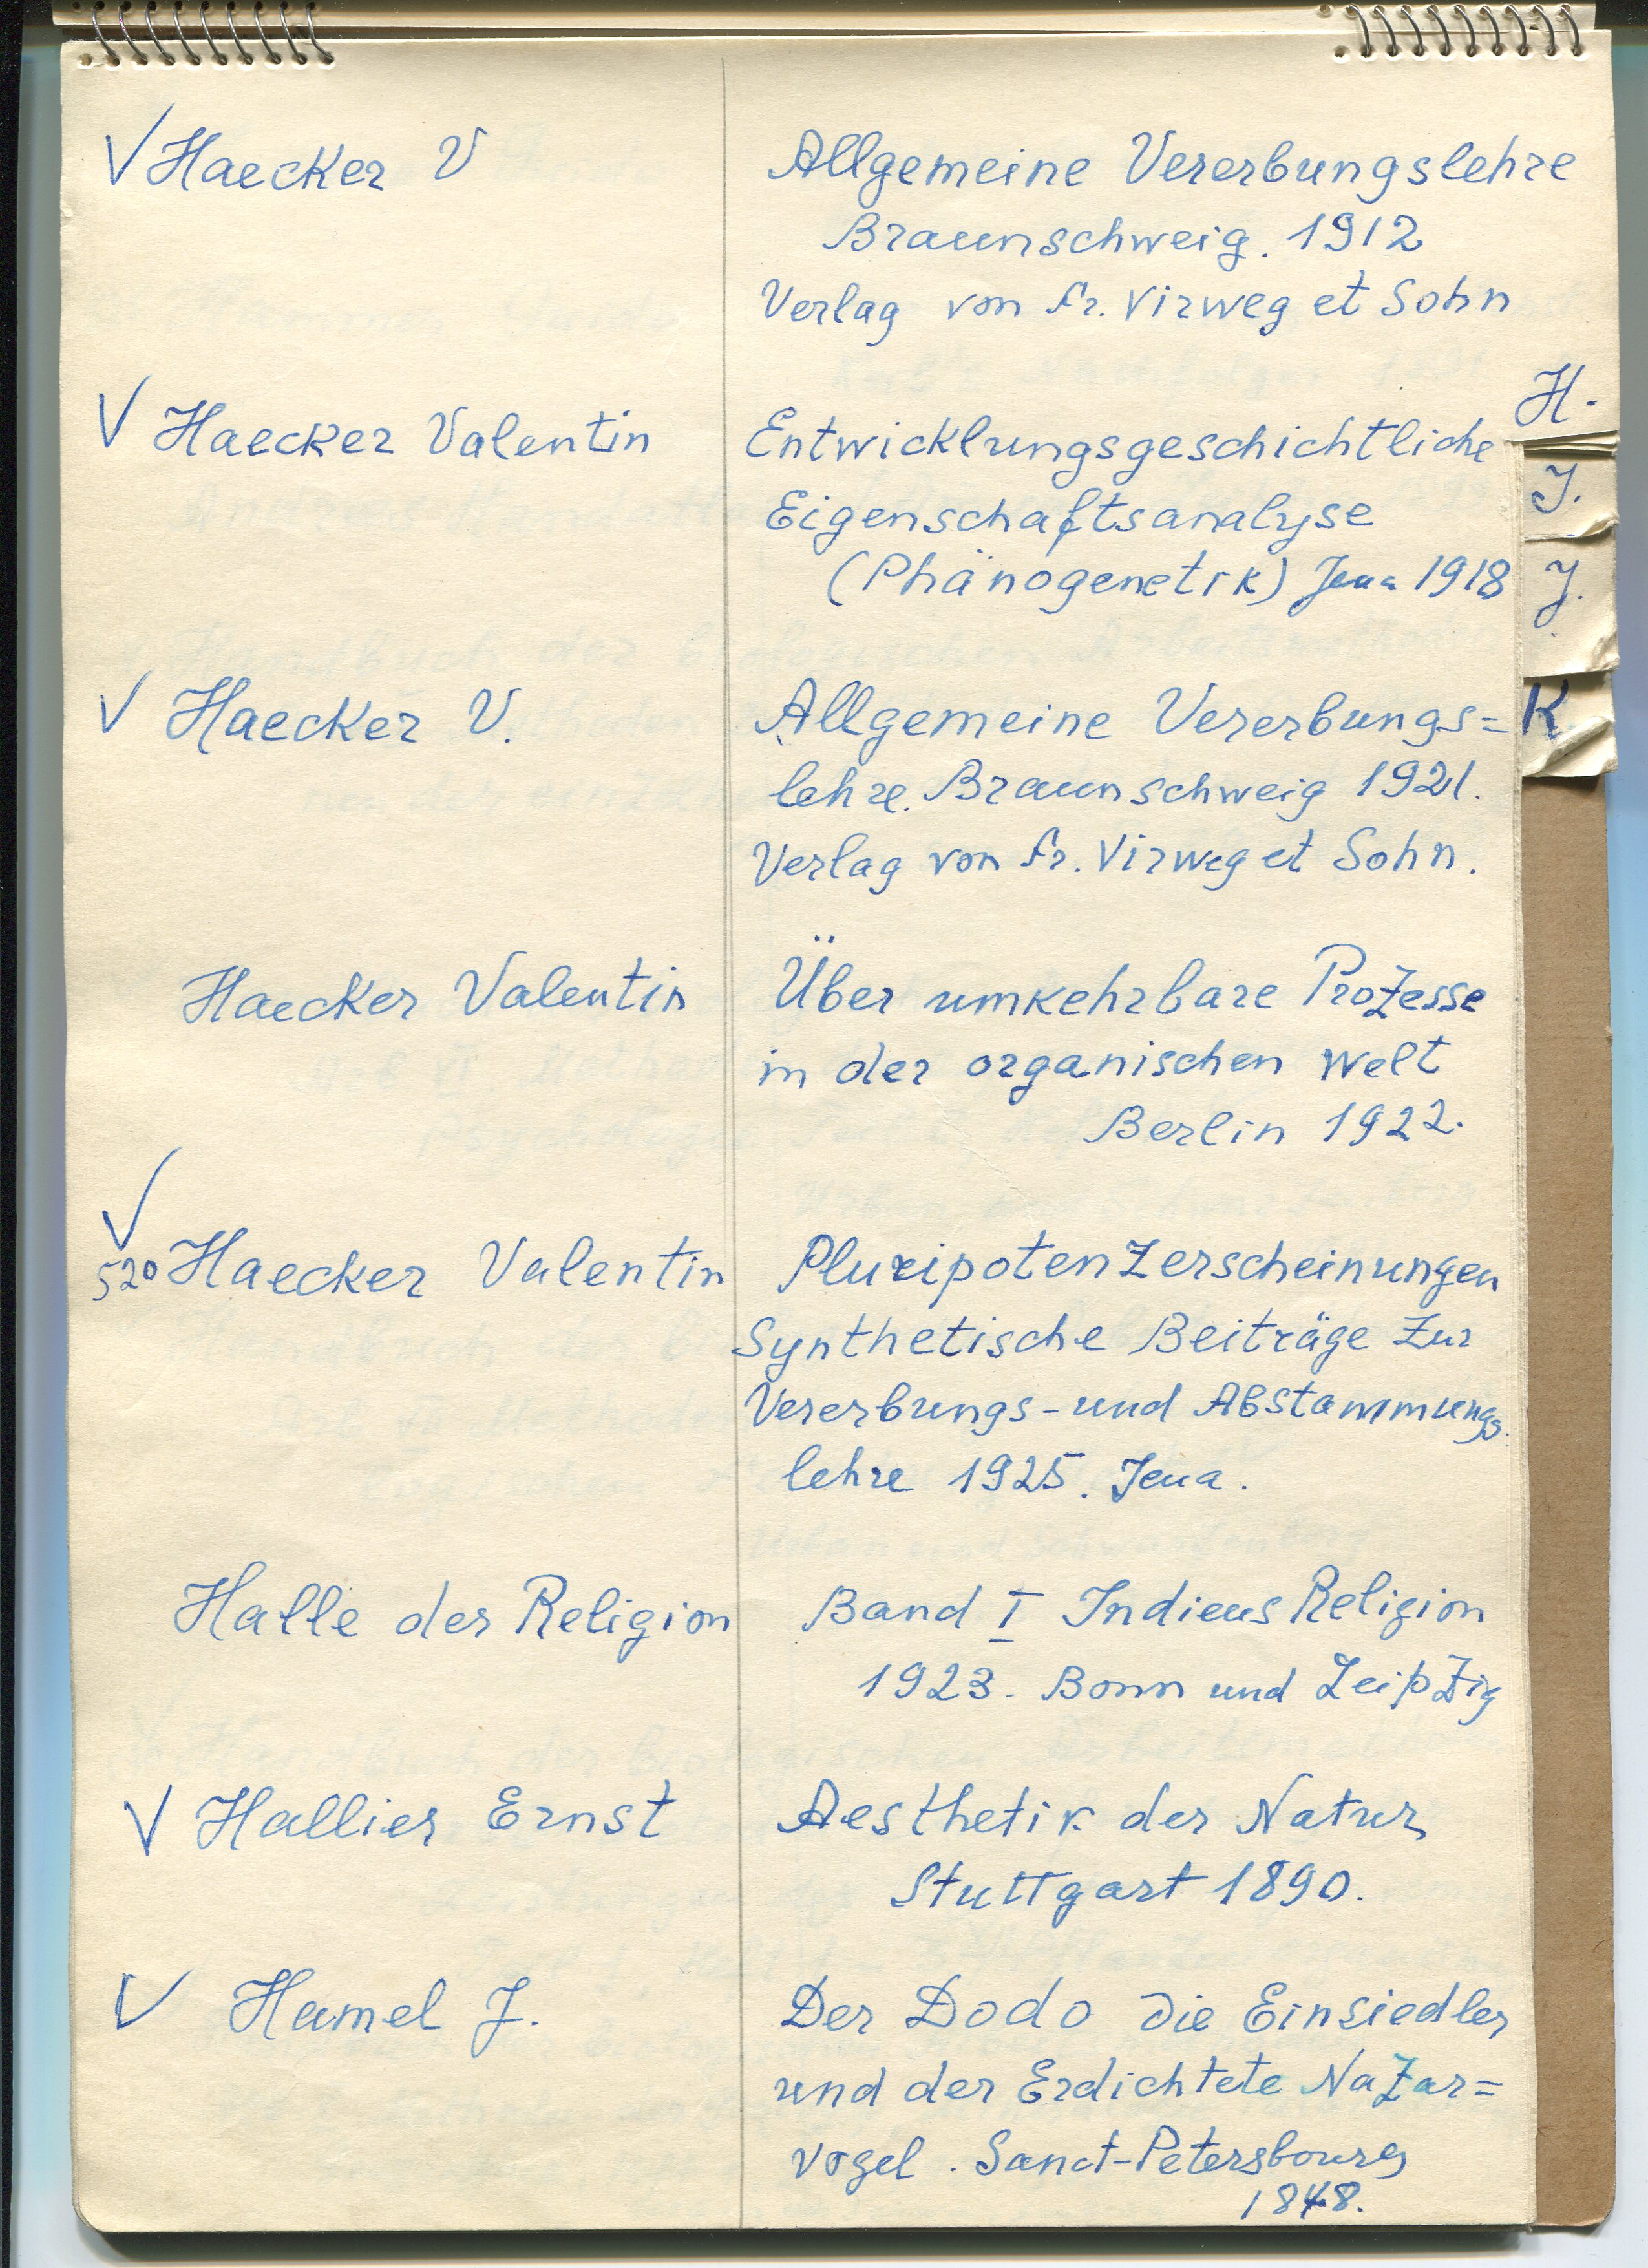 √ Haecker V
Allgemeine Vererbungslehre
Braunschweig. 1912
Verlag von Fr. Virweg et Sohn
H.
√ Haecker Valentin
Entwicklungsgeschichtliche
Eigenschaftsanalyse
(Phänogenetik) Jena 1918
J.
J.
√ Haecker V.
Allgemeine Vererbungs=
lehre. Braunschweig 1921.
Verlag von Fr. Virweg et Sohn.
K
Haecker Valentin
Über umkehrbare Prozesse
in der organischen Welt
Berlin 1922.
√
520 Haecker Valentin
Pluripotenzerscheinungen
Synthetische Beiträge zur
Vererbungs-und Abstammungs.
lehre 1925. Jena.
Halle der Religion
Band I Indiens Religion
1923. Bonn und Leipzig
√ Hallier Ernst
Aesthetik der Natur
Stuttgart 1890.
√ Hamel J.
Der Dodo die Einsiedler
und der Erdichtete Nazar=
vogel. Sanct-Petersbourg
1848.